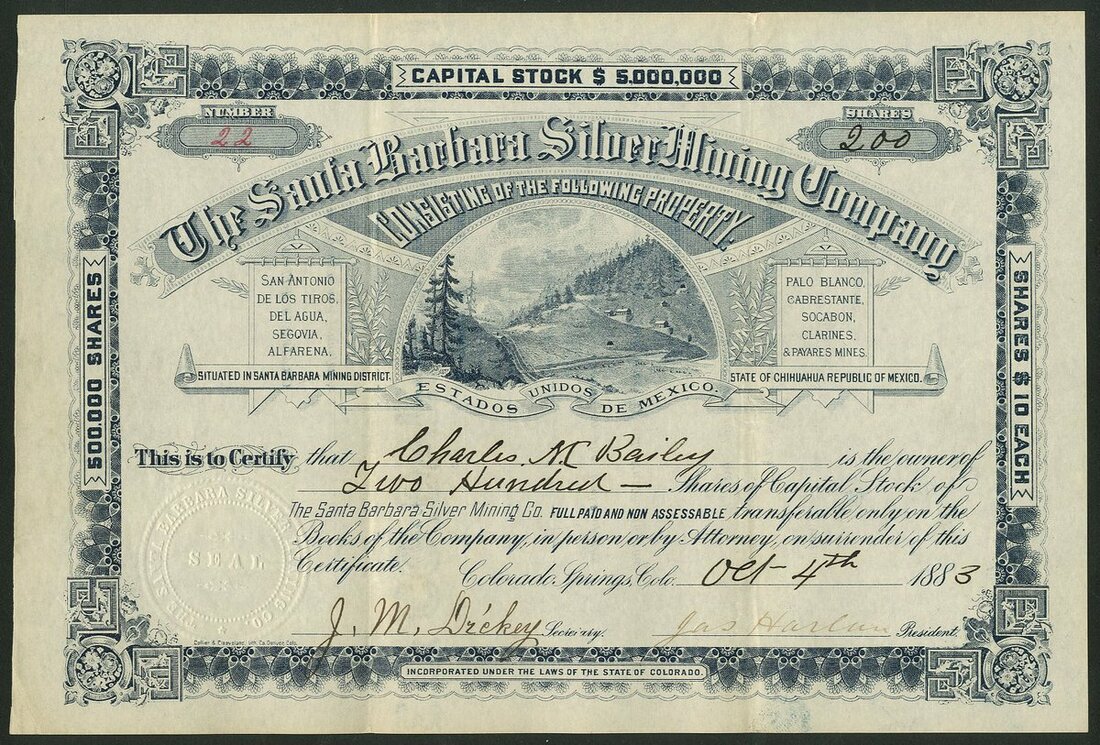 CAPITAL STOCK $ 5,000,000
NUMBER
22
SHARES
200
The Santa Barbara Silver Mining Company
CONSISTING OF THE FOLLOWING PROPERTY.
SAN ANTONIO
DE LOS TIROS,
DEL AGUA,
SEGOVIA,
ALFARENA,
PALO BLANCO,
CABRESTANTE,
SOCABON,
CLARINES,
& PAYARES MINES.
SITUATED IN SANTA BARBARA MINING DISTRICT.
STATE OF CHIHUAHUA REPUBLIC OF MEXICO.
ESTADOS UNIDOS DE MEXICO.
500,000 SHARES
SHARES $ 10 EACH
This is to Certify that Charles M Bailey is the owner of
Two Hundred — Shares of Capital Stock of
The Santa Barbara Silver Mining Co. FULL PAID AND NON ASSESSABLE, transferable only on the
Books of the Company, in person or by Attorney, on surrender of this
Certificate. Colorado Springs, Colo. Oct 4th 1883
THE SANTA BARBARA SILVER MINING CO.
SEAL
J. M. Dickey Secretary. Jas Harlan President.
INCORPORATED UNDER THE LAWS OF THE STATE OF COLORADO.